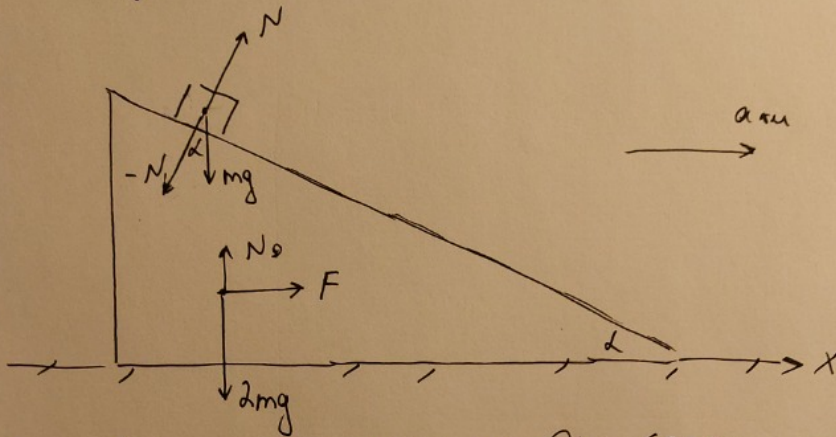 N
α
-N
mg
N₀
F
α
X
2mg